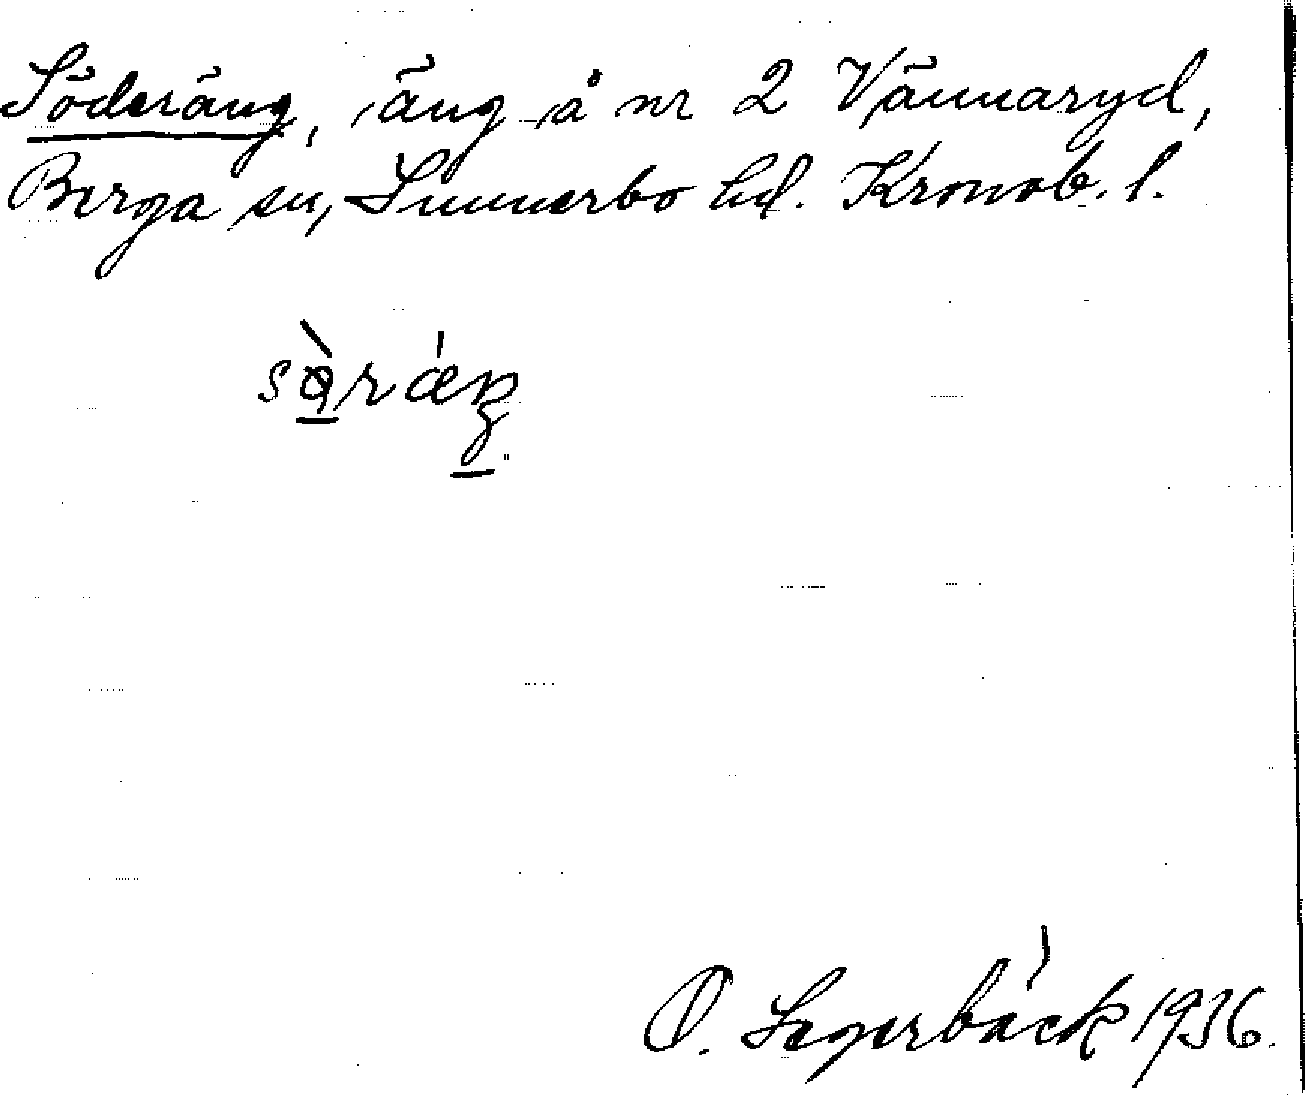 Söderäng, äng å nr 2 Vännaryd,
Berga sn, Sunnerbo hd. Kronob. l.
sø̀ráŋ
O. Segerbäck 1936.